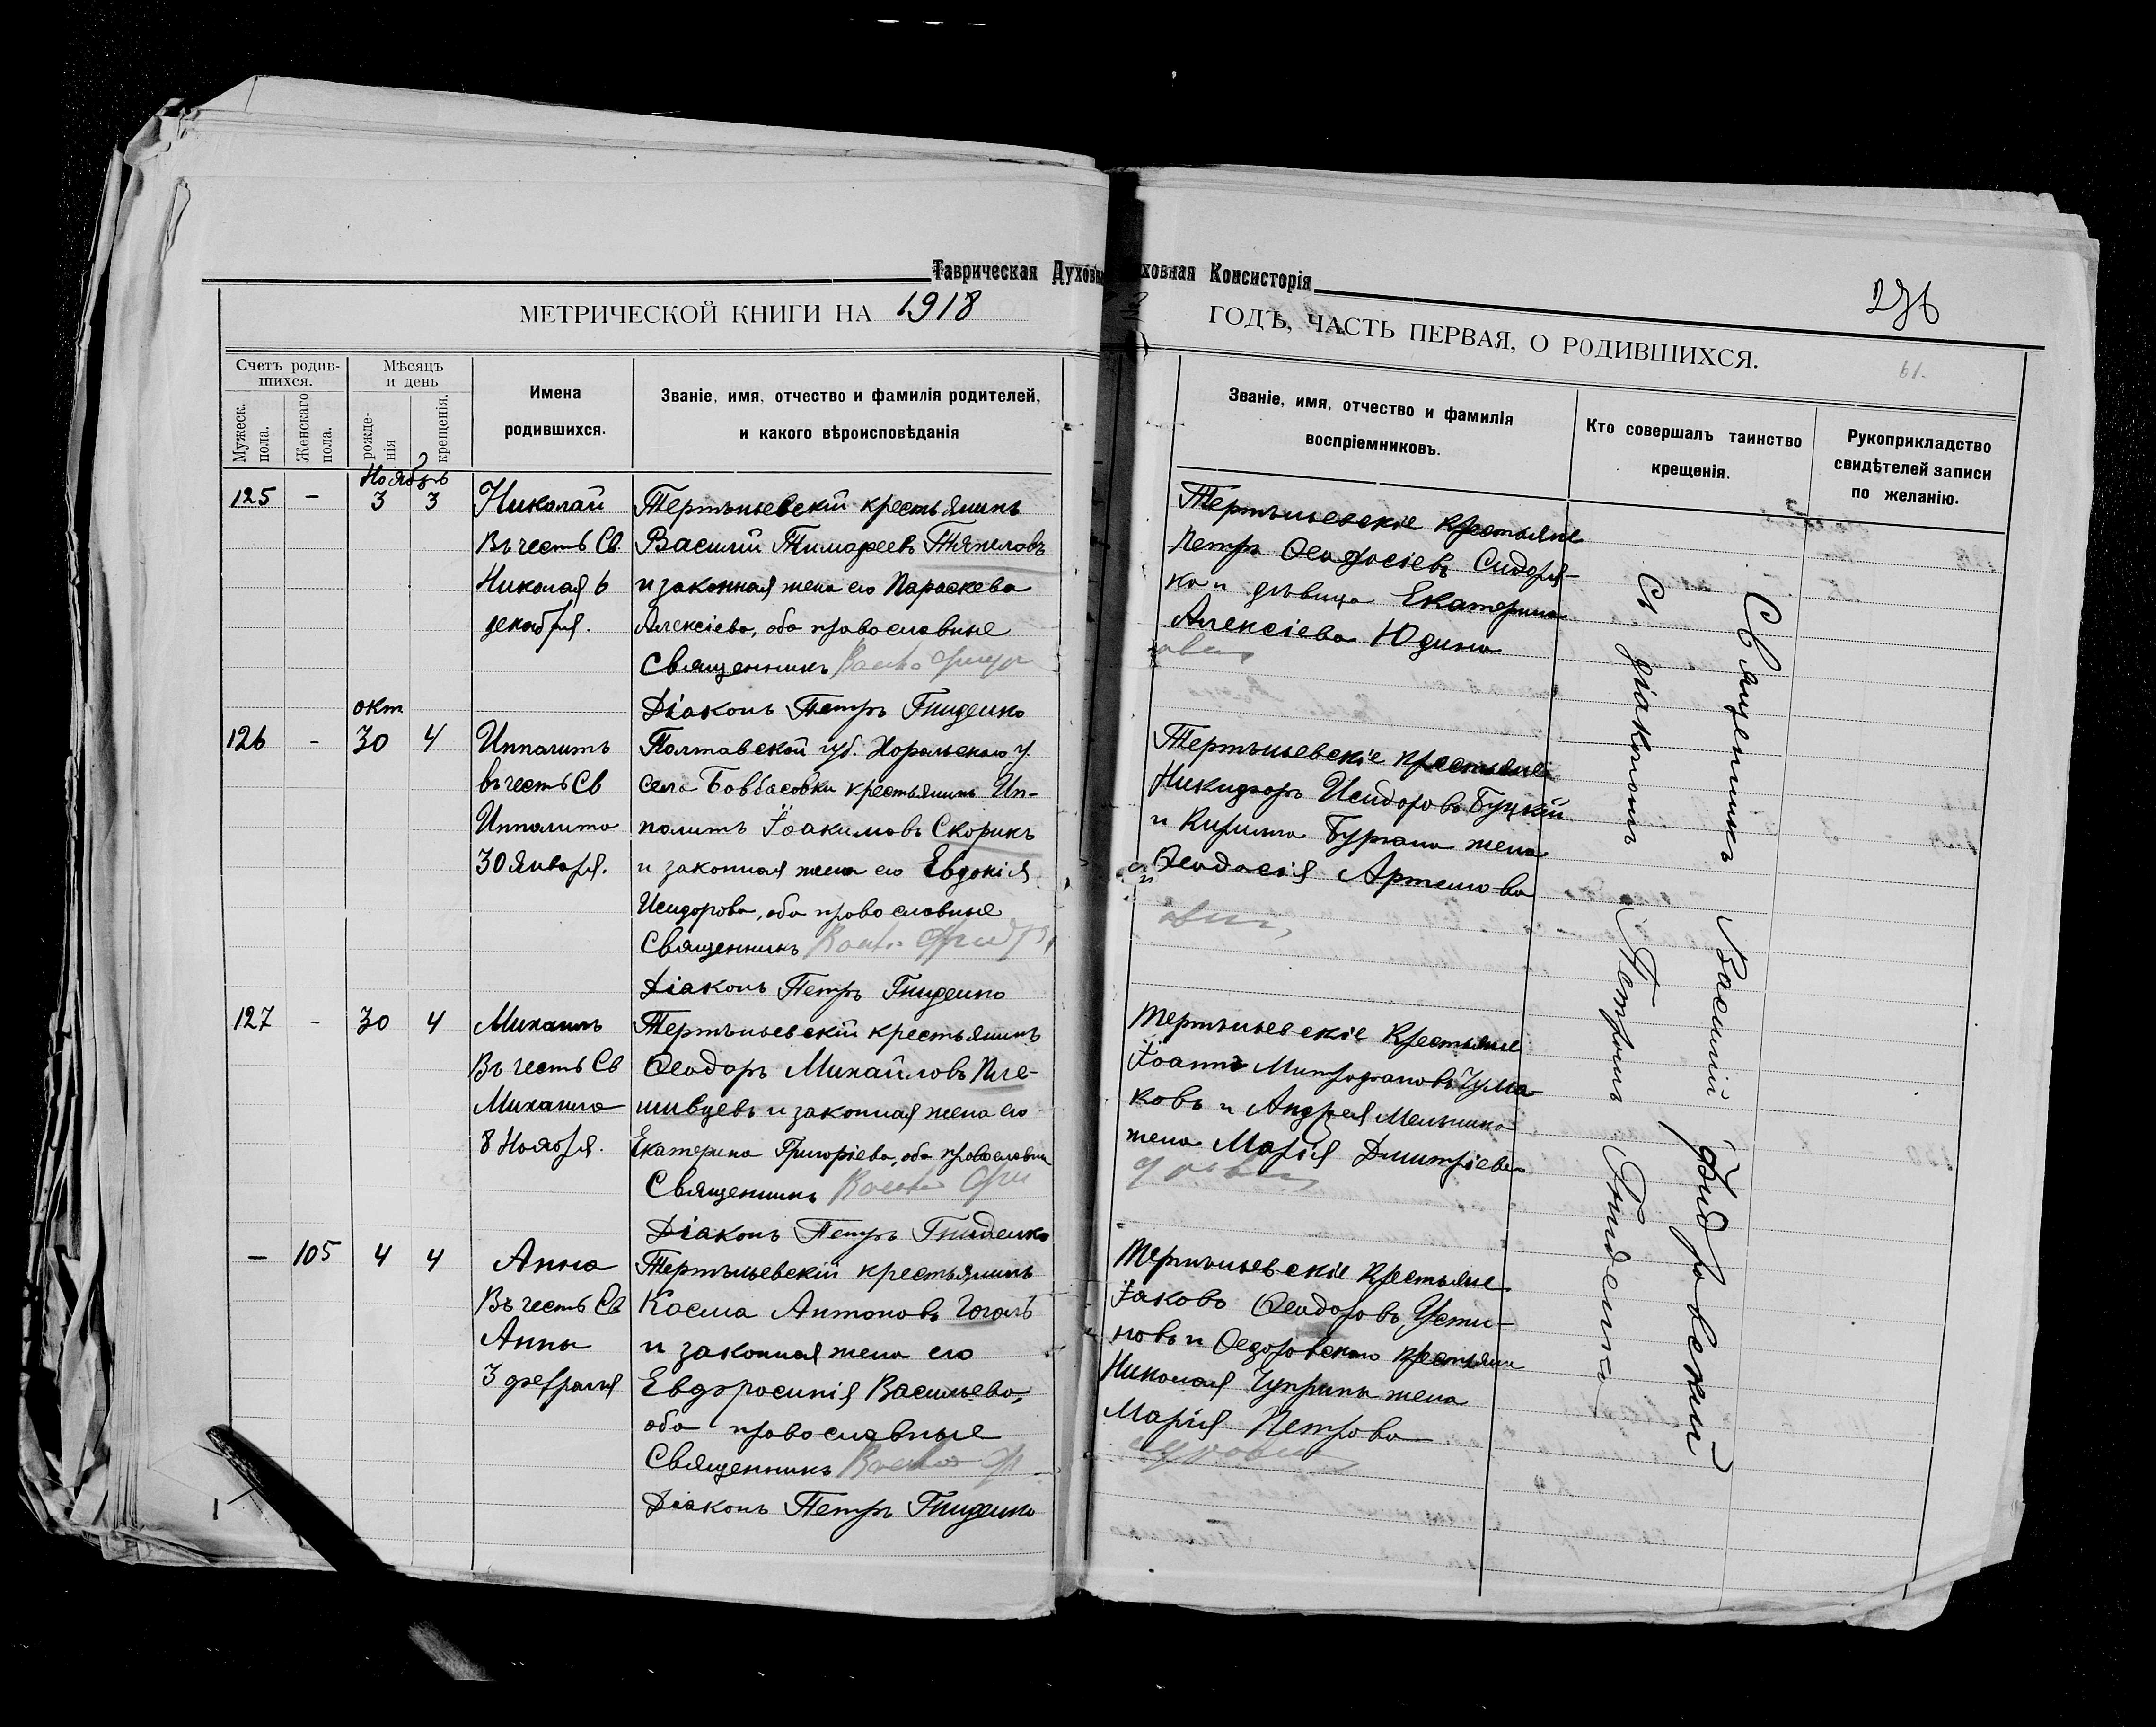 Таврическая Духовная Консисторія
МЕТРИЧЕСКОЙ КНИГИ НА 1918 ГОДЪ, ЧАСТЬ ПЕРВАЯ, О РОДИВШИХСЯ.
276
61.
Счетъ родив-
шихся.
Мужеск.
пола.
Женскаго
пола.
Мѣсяцъ
и день
рожде-
нія
крещенія.
Имена
родившихся.
Званіе, имя, отчество и фамилія родителей,
и какого вѣроисповѣданія
Званіе, имя, отчество и фамилія
воспріемниковъ.
Кто совершалъ таинство
крещенія.
Рукоприкладство
свидѣтелей записи
по желанію.
Ноябрь
125 - 3 3
Николай
Въ честь Св.
Николая 6
декабря.
крестьянинъ
Василий Тимофеевъ
и законная жена его Параскева
Алексіева, оба православные
Священникъ
Діаконъ Петръ Гниденко
крестьяне
Петръ Ѳеодосіевъ Сидоря-
ка и дѣвица Екатерина
Алексіева Юдина
окт
126 - 30 4
Ипполитъ
въ честь Св
Ипполита
30 Января.
Полтавской губ. Хорольскаго у.
села Бовбасовки крестьянинъ Ип-
политъ Іоакимовъ Скорикъ
и законная жена его Евдокія
Исидорова, оба православные
Священникъ
Діаконъ Петръ Гниденко
крестьяне
Никифоръ Исидоровъ Буцкій
и Кирилла жена
Ѳеодосія Артемова
127 - 30 4
Михаилъ
Въ честь Св
Михаила
8 Ноября.
крестьянинъ
Ѳеодоръ Михайловъ Пле-
шивцевъ и законная жена его
Екатерина Григоріева, оба православн
Священникъ
Діаконъ Петръ Гниденко
крестьяне
Іоаннъ Митрофановъ Чума-
ковъ и Андрея Мельника
жена Марія Димитріева
- 105 4 4
Анна
Въ честь Св
Анны
3 февраля
крестьянинъ
Косма Антоновъ Гоголь
и законная жена его
Евфросинія Васильева,
оба православные
Священникъ
Діаконъ Петръ Гниденко
крестьяне
Іаковъ Ѳеодоровъ Усти-
новъ и
Николая Чуприны жена
Марія Петрова
Священникъ Василий Фидровскій
Съ діакономъ Петромъ Гниденко